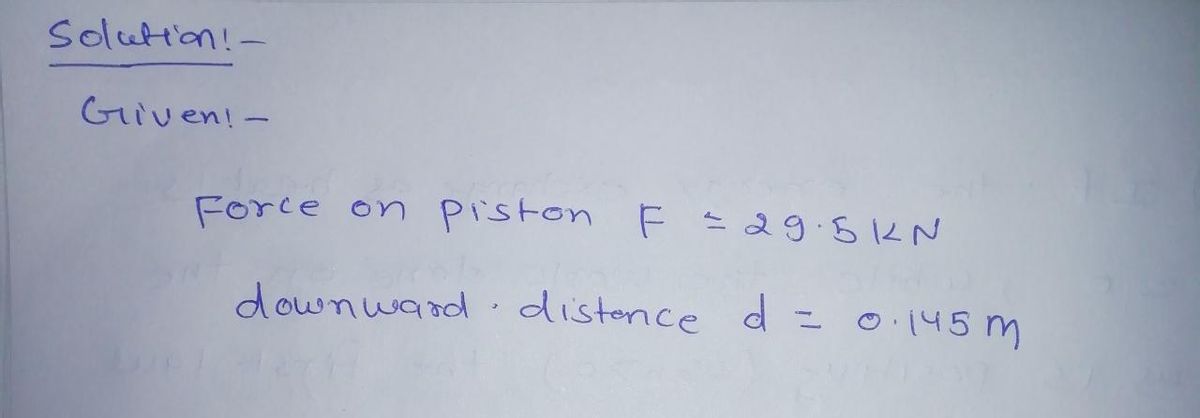 Solution:-
Given:-
Force on piston F = 29.5 KN
downward. distence d = 0.145 m